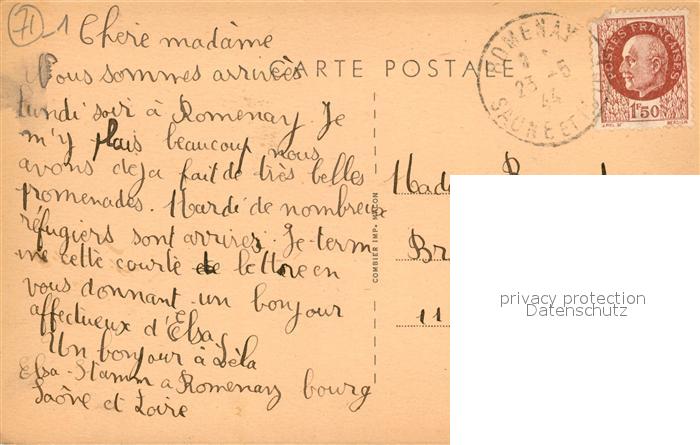 71-1
Chère madame
Nous sommes arrivées
CARTE POSTALE
lundi soir à Romenay. Je
m'y plais beaucoup nous
avons deja fait de très belles
promenades. Mardi de nombreux
réfugiers sont arrivés. Je term
ine cette courte lettre en
vous donnant un bonjour
affectueux d'Elsa
Un bonjour à Lèla
Elsa Stamm a Romenay bourg
Saône et Loire
ROMENAY
23 -5
44
SAONE ET
POSTES FRANÇAISES
1F50
COMBIER IMP. MACON
Mada
Br
11
privacy protection
Datenschutz